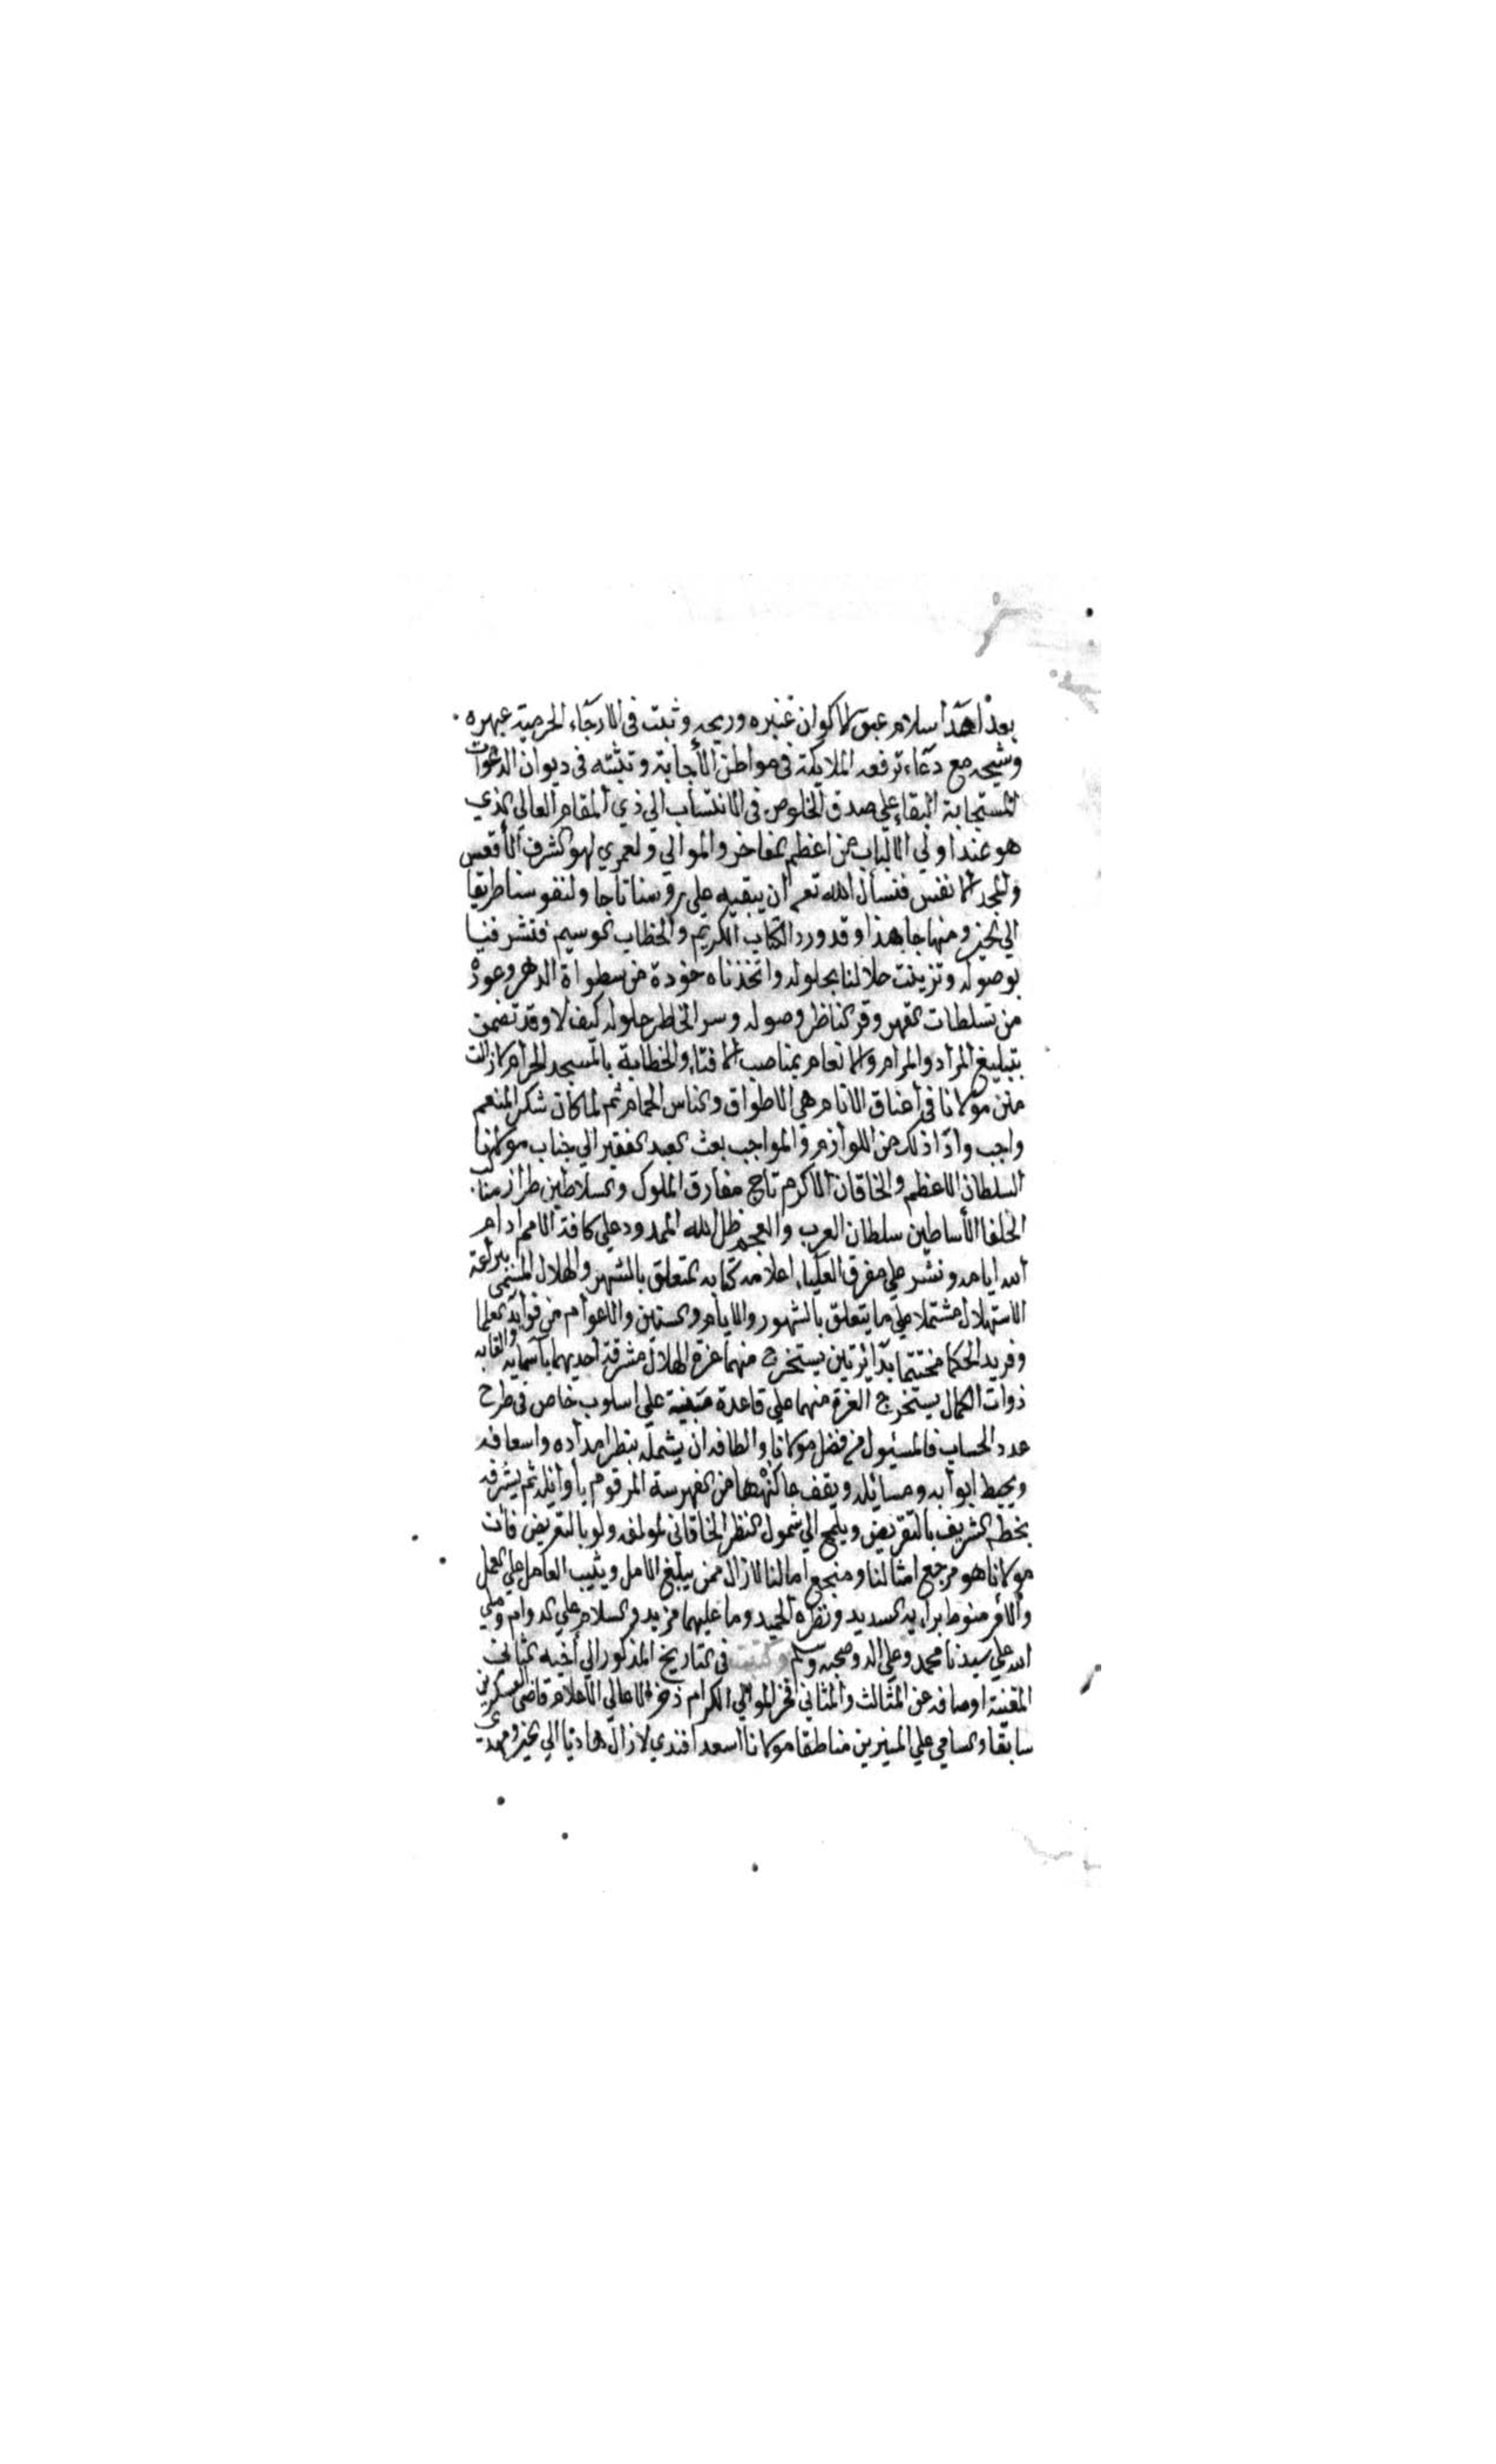 بعد اهدآ سلام عبق الاكوان عنبره وريحه وثبت فى الارجآء الحرمية عبهره
وشيحه مع دعآء ترفعه الملايكة فى مواطن الأجابة وتثبته فى ديوان الدعوات
المستجابة البقاء علي صدق الخلوص فى الانتساب الي ذي المقام العالي الذي
هو عند اولي الالباب من اعظم المفاخر والموالي ولعمري لهو الشرف الأقعس
والمجد الانفس فنسأل الله تعم ان يبقيه على روسنا تاجا ولنفوسنا طريقا
الي الخير ومنهاجا هذا وقد ورد الكتاب الكريم والخطاب الوسيم فتشرفنا
بوصوله وتزينت حلالنا بحلوله واتخذناه خوذة من سطواة الدهر وعوذة
من تسلطات القهر وقر الناظر وصوله وسر الخاطر حلوله كيف لا وقد تضمن
بتبليغ المراد والمرام والانعام بمناصب الافتاء والخطابة بالمسجد الحرام لازالت
منن مولانا فى اعناق الانام هي الاطواق والناس الحمام ثم لما كان شكر المنعم
واجب وادآ ذلك من اللوازم والمواجب بعث العبد الفقير الي جناب مولانا
السلطان الاعظم والخاقان الاكرم تاج مفارق الملوك والسلاطين طراز مناكب
الخلفا الأساطين سلطان العرب والعجم ظل الله الممدود علي كافة الامم ادام
الله ايامه ونشر علي مفرق العليآء اعلامه كتابه المتعلق بالشهر والهلال المسمى ببراعة
الاستهلال مشتملا علي ما يتعلق بالشهور والايام والسنين والاعوام من فوايد العلما
وفريد الحكما مختتما بدآئرتين يستخرج منهما غرة الهلال مشرقة احديهما بآسمايه والقابه
ذوات الكمال يستخرج الغرة منهما علي قاعدة مبنية علي اسلوب خاص فى طرح
عدد الحساب فالمسئول من فضل مولانا والطافه ان يشمله بنظر امداده واسعافه
ويحيط ابوابه ومسائله ويقف ما كنهها من الفهرسة المرقوم بأوائله ثم يشرفه
بخطه الشريف بالتقريض ويلمح الي شمول النظر الخاقاني لمولفه ولو بالتعريض فأنت
مولانا هو مرجع امثالنا ومنجع امالنا لازال ممن يبلغ الامل ويثيب العامل علي العمل
والأمر منوط برأيه السديد ونظره الحميد وما عليهما مزيد والسلام علي الدوام وصلي
الله علي سيدنا محمد وعلي اله وصحبه وسلم وكتبت فى التاريخ المذكور الي أخيه الثاني
المغنية اوصافه عن المثالث والمثاني فخر الموالي الكرام ذخر الاعالي الاعلام قاضى العسكرين
سابقا والسامي علي المنيرين مناطقا مولانا اسعد افندي لازال هاديا الي الخير ومهدي